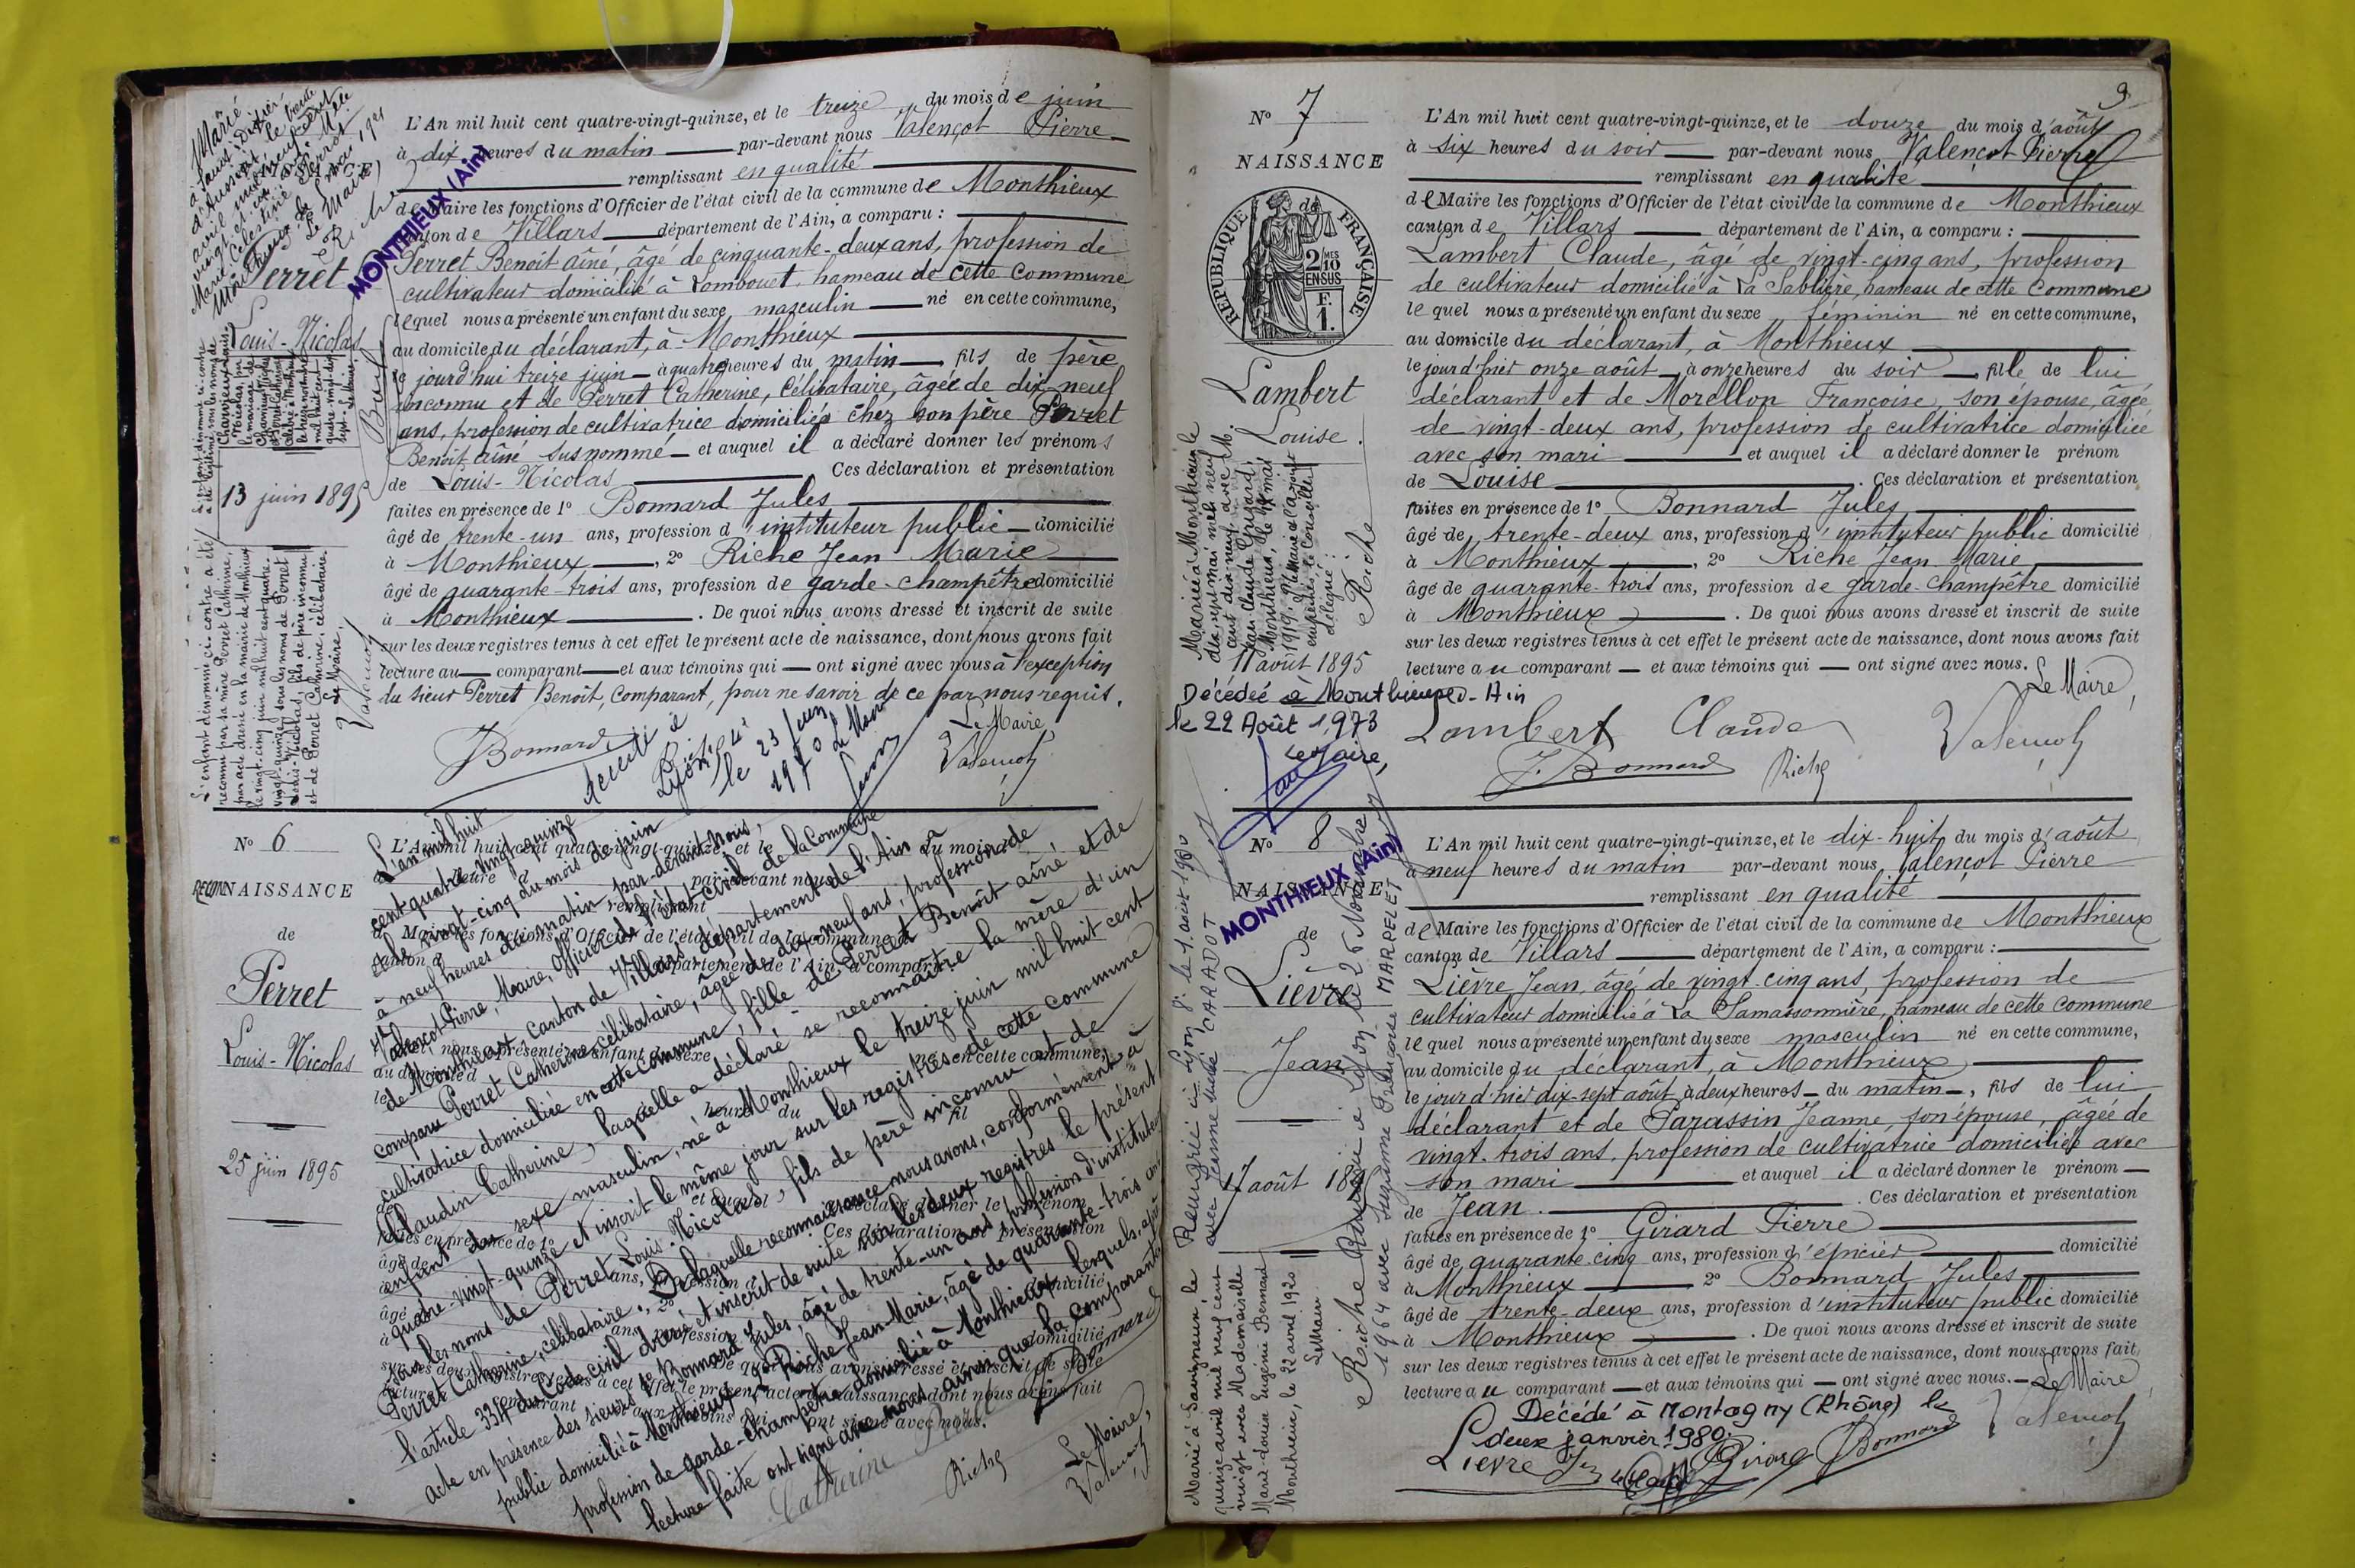 L'An mil huit cent quatre-vingt-quinze, et le treize du mois de juin
à dix heures du matin — par-devant nous Valençot Pierre
remplissant en qualité
de Maire les fonctions d'Officier de l'état civil de la commune de Monthieux
canton de Villars — département de l'Ain, a comparu :
Perret Benoit aîné, âgé de cinquante-deux ans, profession de
cultivateur domicilié à Lombouet, hameau de cette commune
lequel nous a présenté un enfant du sexe masculin — né en cette commune,
au domicile du déclarant, à Monthieux
le jourd'hui treize juin — à quatre heures du matin — fils de père
inconnu et de Perret Catherine, célibataire, âgée de dix-neuf
ans, profession de cultivatrice domiciliée chez son père Perret
Benoit aîné susnommé — et auquel il a déclaré donner les prénoms
de Louis-Nicolas Ces déclaration et présentation
faites en présence de 1º Bonnard Jules
âgé de trente-un ans, profession d'instituteur public — domicilié
à Monthieux —, 2º Riche Jean Marie
âgé de quarante-trois ans, profession de garde-champêtre domicilié
à Monthieux . De quoi nous avons dressé et inscrit de suite
sur les deux registres tenus à cet effet le présent acte de naissance, dont nous avons fait
lecture au — comparant — et aux témoins qui — ont signé avec nous à l'exception
du sieur Perret Benoit, comparant, pour ne savoir de ce par nous requis.
Le Maire
Bonnard
Valençot
MONTHIEUX (Ain)
Perret
Louis-Nicolas
13 juin 1895
L'enfant dénommé ci-contre a été
reconnu par sa mère Perret Catherine,
par acte dressé en la mairie de Monthieux
le vingt-cinq juin mil huit cent quatre-
vingt-quinze, sous les noms de Perret
Louis-Nicolas, fils de père inconnu
et de Perret Catherine, célibataire.
Le Maire,
Valençot
Nº 6
RECONNAISSANCE
de
Perret
Louis-Nicolas
25 juin 1895
L'an mil huit
cent quatre-vingt-quinze
et le vingt-cinq du mois de juin
à neuf heures du matin, par-devant nous,
Valençot Pierre, Maire, Officier de l'état civil de la commune
de Monthieux, canton de Villars, département de l'Ain a
comparu Perret Catherine, célibataire, âgée de dix-neuf ans, profession de
cultivatrice domiciliée en cette commune, fille de Perret Benoît aîné et de
Claudin Catherine, laquelle a déclaré se reconnaître la mère d'un
enfant du sexe masculin, né à Monthieux le treize juin mil huit cent
quatre-vingt-quinze et inscrit le même jour sur les registres de cette commune
sous les noms de Perret Louis-Nicolas, fils de père inconnu et de
Perret Catherine, célibataire. De laquelle reconnaissance nous avons, conformément à
l'article 334 du Code civil dressé et inscrit de suite sur les deux registres le présent
acte en présence des sieurs 1º Bonnard Jules, âgé de trente-un ans profession d'instituteur
public domicilié à Monthieux, 2º Riche Jean-Marie, âgé de quarante-trois ans
profession de garde-champêtre domicilié à Monthieux, lesquels, après
lecture faite ont signé avec nous ainsi que la comparante
Catherine Perret
J. Bonnard
Riche
Le Maire,
Valençot
9
Nº 7
NAISSANCE
REPUBLIQUE FRANÇAISE
2/10 MES EN SUS
F. 1.
Lambert
Louise.
11 août 1895
Mariée à Monthieux le
dix-sept mai mil neuf
cent dix-neuf avec M.
Jean Claude Grisard.
Monthieux, le 17 mai
1919. P. le Maire et l'adjoint
empêchés le Conseiller
délégué:
Riche
Décédée à Monthieux - Ain
le 22 Août 1973
Le Maire,
L'An mil huit cent quatre-vingt-quinze, et le douze du mois d'août
à six heures du soir — par-devant nous Valençot Pierre
remplissant en qualité
de Maire les fonctions d'Officier de l'état civil de la commune de Monthieux
canton de Villars — département de l'Ain, a comparu :
Lambert Claude, âgé de vingt-cinq ans, profession
de cultivateur domicilié à La Sablière, hameau de cette commune
lequel nous a présenté un enfant du sexe féminin né en cette commune,
au domicile du déclarant, à Monthieux
le jour d'hier onze août — à onze heures du soir —, fille de lui
déclarant et de Morellon Françoise, son épouse, âgée
de vingt-deux ans, profession de cultivatrice domiciliée
avec son mari — et auquel il a déclaré donner le prénom
de Louise . Ces déclaration et présentation
faites en présence de 1º Bonnard Jules
âgé de trente-deux ans, profession d'instituteur public domicilié
à Monthieux —, 2º Riche Jean Marie
âgé de quarante-trois ans, profession de garde-champêtre domicilié
à Monthieux . De quoi nous avons dressé et inscrit de suite
sur les deux registres tenus à cet effet le présent acte de naissance, dont nous avons fait
lecture au comparant — et aux témoins qui — ont signé avec nous.
Le Maire,
Lambert Claude
Valençot
J. Bonnard
Riche
Nº 8
NAISSANCE
MONTHIEUX (Ain)
de
Lièvre
Jean
17 août 1895
Marié à Savigneux le
quinze avril mil neuf cent
vingt avec Mademoiselle
Marie-Louise Eugénie Bernard
Monthieux, le 22 avril 1920
Le Maire
Riche
L'An mil huit cent quatre-vingt-quinze, et le dix-huit du mois d'août
à neuf heures du matin par-devant nous Valençot Pierre
remplissant en qualité
de Maire les fonctions d'Officier de l'état civil de la commune de Monthieux
canton de Villars — département de l'Ain, a comparu :
Lièvre Jean, âgé de vingt-cinq ans, profession de
cultivateur domicilié à La Samassonnière, hameau de cette commune
lequel nous a présenté un enfant du sexe masculin né en cette commune,
au domicile du déclarant, à Monthieux
le jour d'hier dix-sept août, à deux heures — du matin —, fils de lui
déclarant et de Parassin Jeanne, son épouse, âgée de
vingt-trois ans, profession de cultivatrice domiciliée avec
son mari — et auquel il a déclaré donner le prénom —
de Jean. . Ces déclaration et présentation
faites en présence de 1º Girard Pierre
âgé de quarante cinq ans, profession d'épicier domicilié
à Monthieux 2º Bonnard Jules
âgé de trente-deux ans, profession d'instituteur public domicilié
à Monthieux . De quoi nous avons dressé et inscrit de suite
sur les deux registres tenus à cet effet le présent acte de naissance, dont nous avons fait
lecture au comparant — et aux témoins qui — ont signé avec nous. — Le Maire
Décédé à Montagny (Rhône) le
deux janvier 1980.
Lièvre
Girard
Bonnard
Valençot